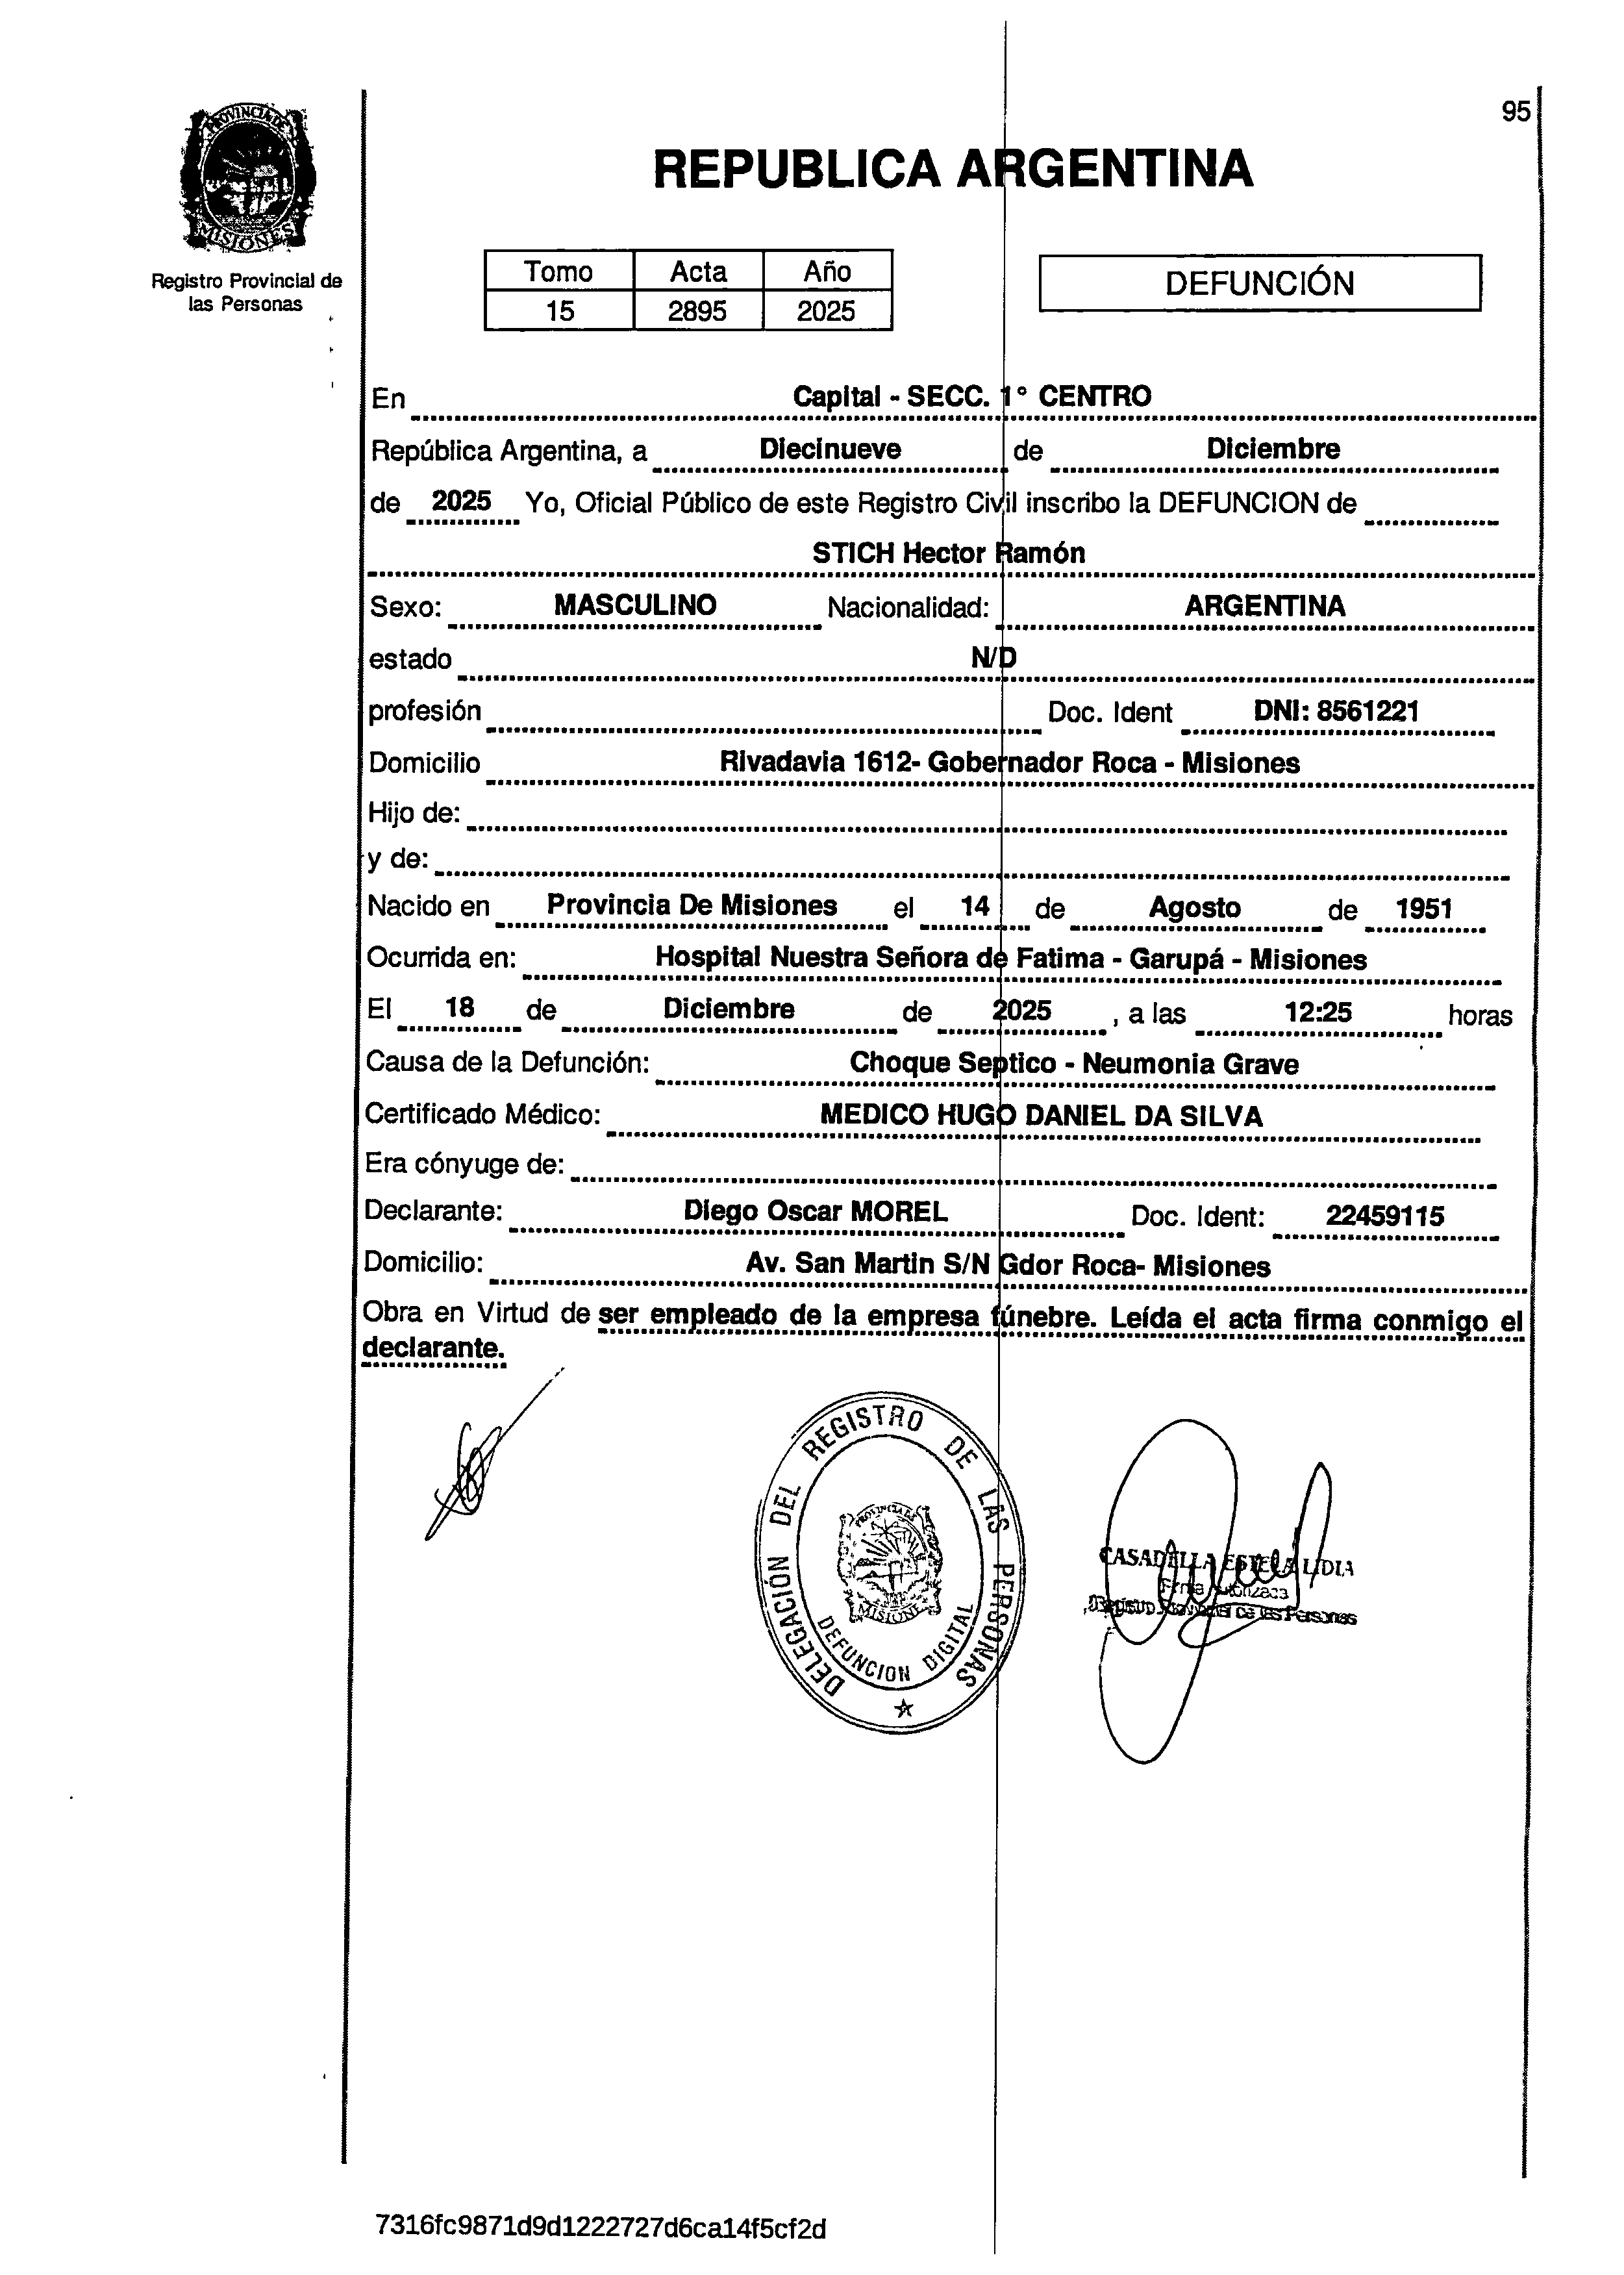 95
PROVINCIA DE
MISIONES
REPUBLICA ARGENTINA
Registro Provincial de
las Personas
Tomo Acta Año
15 2895 2025
DEFUNCIÓN
En Capital - SECC. 1° CENTRO
República Argentina, a Diecinueve de Diciembre
de 2025 Yo, Oficial Público de este Registro Civil inscribo la DEFUNCION de
STICH Hector Ramón
Sexo: MASCULINO Nacionalidad: ARGENTINA
estado N/D
profesión Doc. Ident DNI: 8561221
Domicilio Rivadavia 1612- Gobernador Roca - Misiones
Hijo de:
y de:
Nacido en Provincia De Misiones el 14 de Agosto de 1951
Ocurrida en: Hospital Nuestra Señora de Fatima - Garupá - Misiones
El 18 de Diciembre de 2025 , a las 12:25 horas
Causa de la Defunción: Choque Septico - Neumonia Grave
Certificado Médico: MEDICO HUGO DANIEL DA SILVA
Era cónyuge de:
Declarante: Diego Oscar MOREL Doc. Ident: 22459115
Domicilio: Av. San Martin S/N Gdor Roca- Misiones
Obra en Virtud de ser empleado de la empresa fúnebre. Leída el acta firma conmigo el
declarante.
DELEGACIÓN DEL REGISTRO DE LAS PERSONAS
PROVINCIA DE
MISIONES
DEFUNCION DIGITAL
CASADELLA ESTELA LIDIA
de las Personas
7316fc9871d9d1222727d6ca14f5cf2d